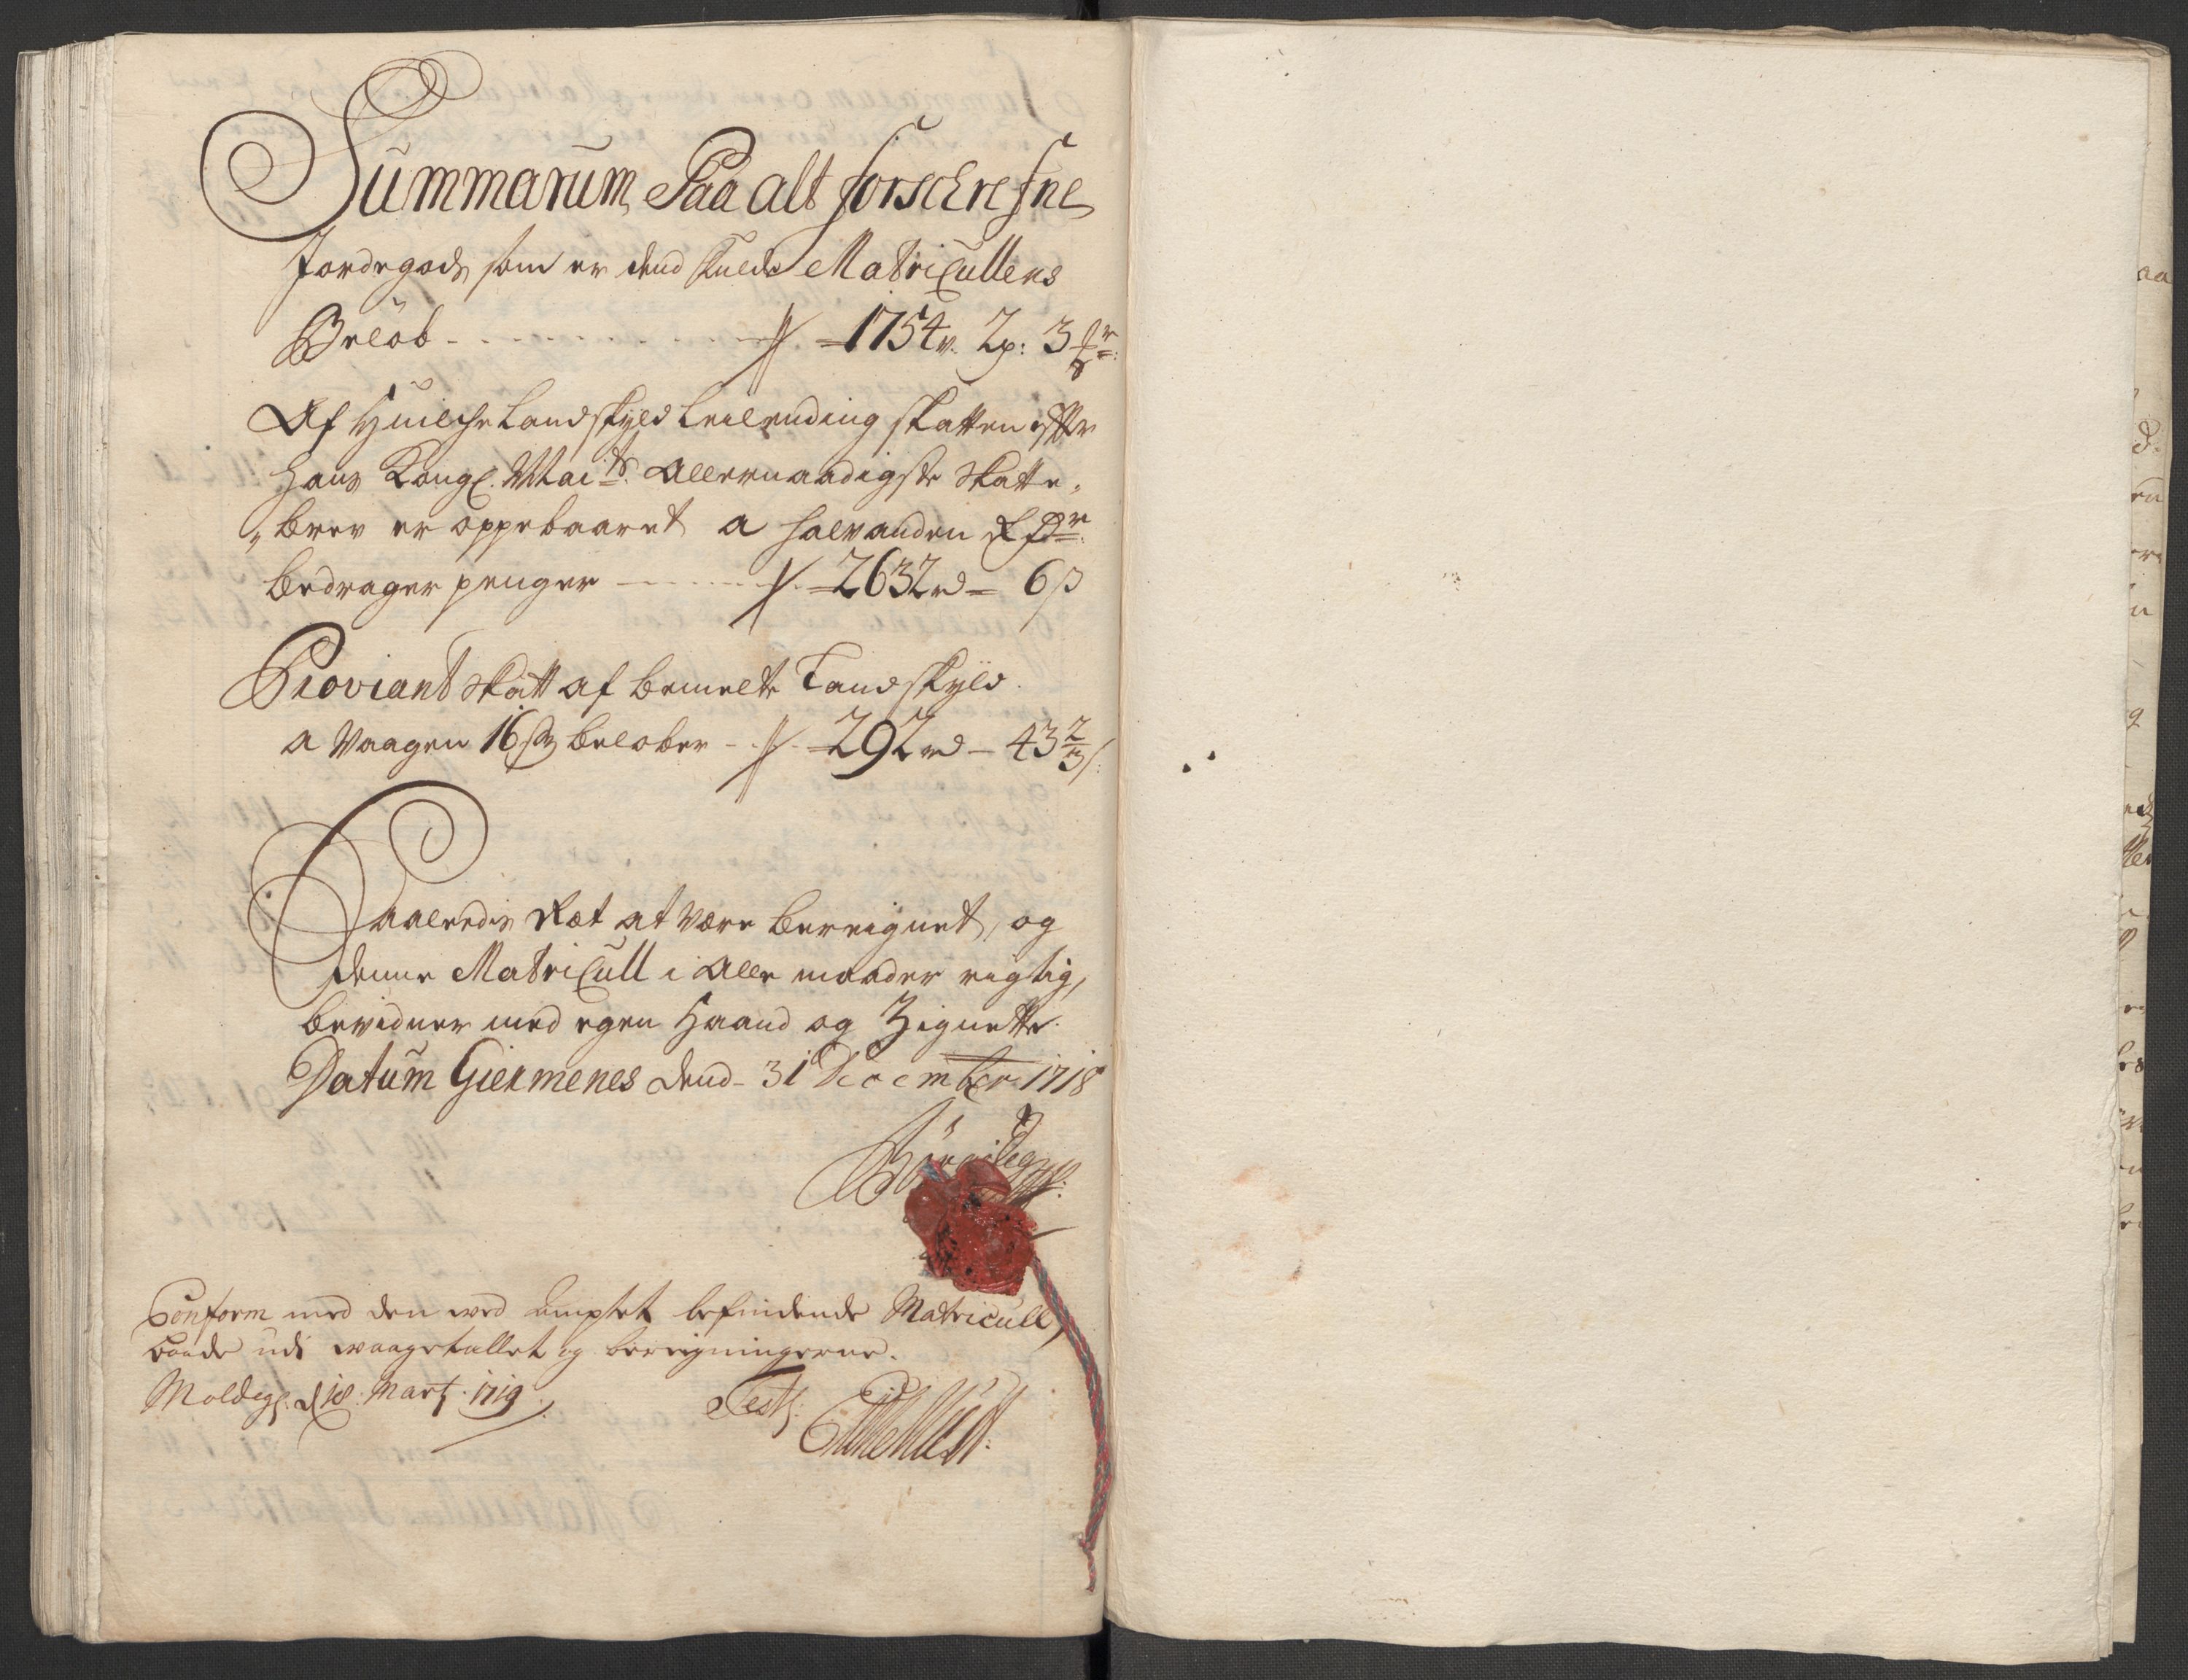 Summarum Paa alt forschrefne
Jordegods som er dend fulde Matricullens
Beløb - - - - - - - - - - 1754 v. 2 p: 3
Af Huilche Landskyld Leilending skatten effter
Hans Kongl. Maits. Allernaadigste Skatte-
brev er oppebaaret a halvanden
bedrager penger - - - - 2632 rd - 6 s
Proviant Skatt af bemelte Landskyld
a Vaagen 16 s beløber - - 292 rd - 43 2/3 s:
Saaledis Ræt at være bereignet, og
denne Matricull i alle maader rigtig,
bevidner med egen Haand og Zignette.
Datum Giermenes dend 31 December 1718
Conform med den wed Amptet befindende Matricull,
baade udi waagetallet og beregningerne.
Moldeg. d 18 Marti 1719
Test:
aa